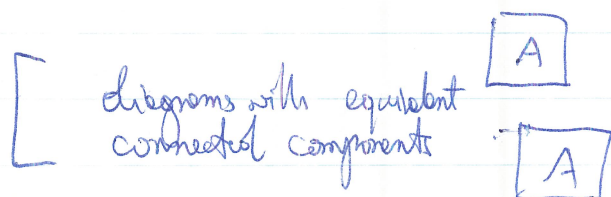 A
diagrams with equivalent
connected components
A